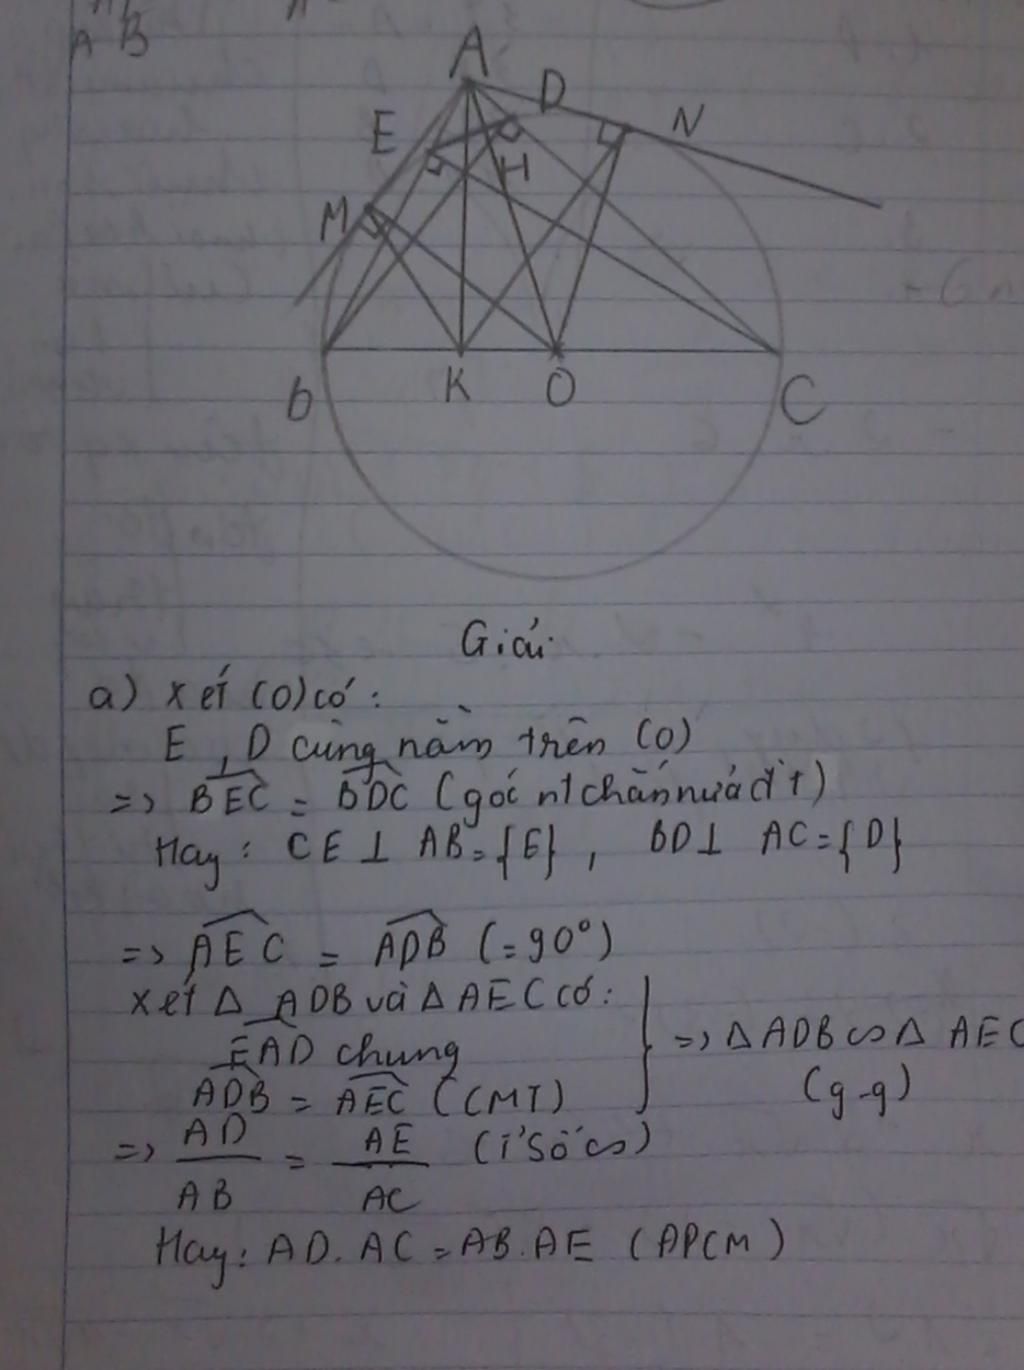 A B
A
E
D
N
H
M
B
K
O
C
Giải
a) Xét (O) có:
E, D cùng nằm trên (O)
=> BEC = BDC (góc nt chắn nửa đ't)
Hay: CE ⊥ AB = {E}, BD ⊥ AC = {D}
=> AEC = ADB (= 90°)
Xét Δ ADB và Δ AEC có:
EAD chung
ADB = AEC (CMT)
=> Δ ADB ∽ Δ AEC
(g-g)
=> AD/AB = AE/AC (Tỉ số ∽)
Hay: AD.AC = AB.AE (ĐPCM)